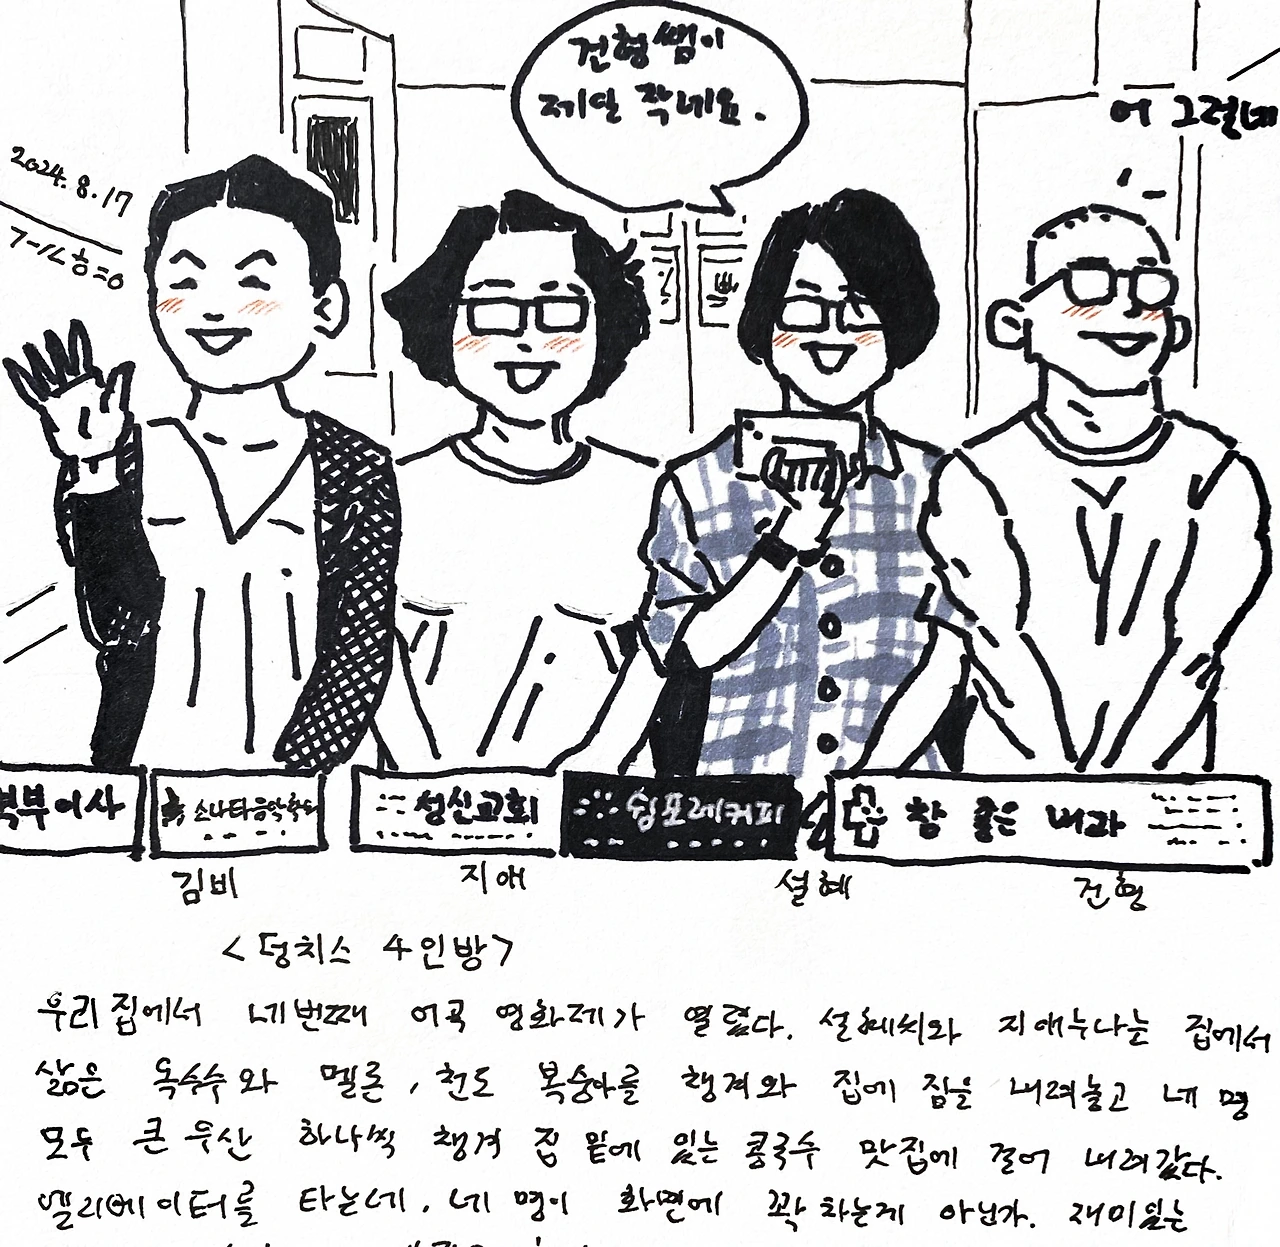 건형쌤이
제일 작네요.
어 그렇네
2024.8.17
복부이사
소나타음악학원
성신교회
쉼포레커피
참 좋은 내과
김비
지애
설혜
건형
<덩치스 4인방>
우리 집에서 네번째 어곡 영화제가 열렸다. 설혜씨와 지애누나는 집에서
삶은 옥수수와 멜론, 천도 복숭아를 챙겨와 집에 짐을 내려놓고 네 명
모두 큰 우산 하나씩 챙겨 집 밑에 있는 콩국수 맛집에 걸어 내려갔다.
엘리베이터를 타는데, 네 명이 화면에 꽉 차는게 아닌가. 재미있는